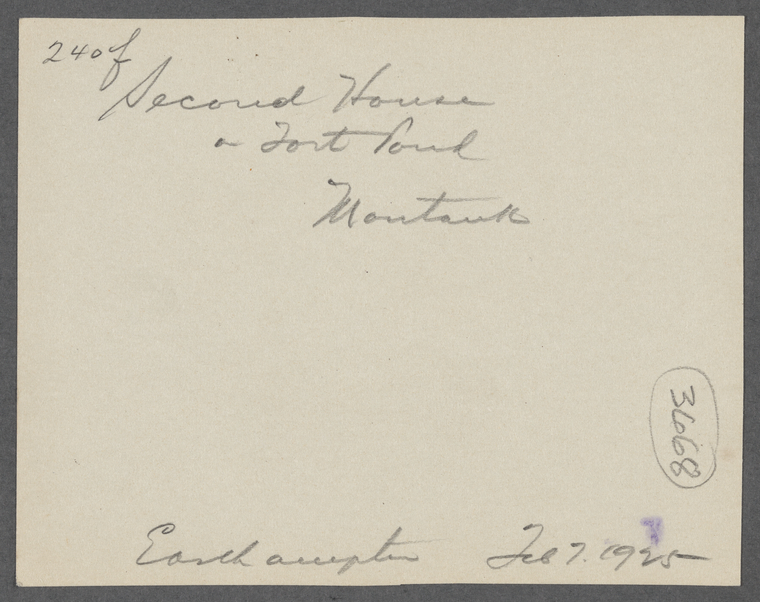 240f
Second House
on Fort Pond
Montauk
3668
Easthampton Feb 7. 1925